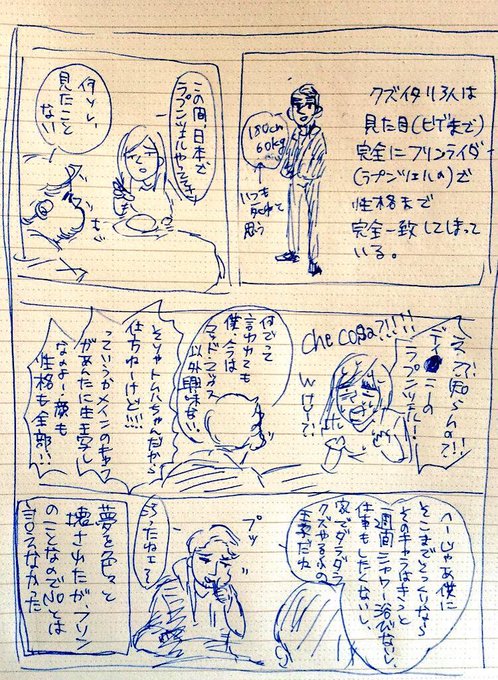 クズイタリ3人は
見た目(ヒゲまで)
完全にフリンライダー
(ラプンツェルの)で
性格まで
完全一致してしまって
いる。
180cm
60kg
いつも
思う
この間日本で
ラプンツェルやってさ
何ソレ
見たこと
ない
え!?知らんの?!!
ラプンツェル!!
Che cosa?!!!!
何でって
言われても
僕今は
マッドマックス
以外興味ない
そりゃトムハちゃんだから
仕方ねーけど!!!
っていうかメインのキャ
があんたに生写し
なのよー!顔も
性格も全部!!
へーじゃあ僕に
そこまでとっくりなら
そのキャラはきっと
一週間シャワー浴びないし
仕事もしたくないし
家でダラダラ
クズやるのの
主義だね
プッ
夢を色々と
壊されたが、フリン
のことなので「No」とは
言えなかった